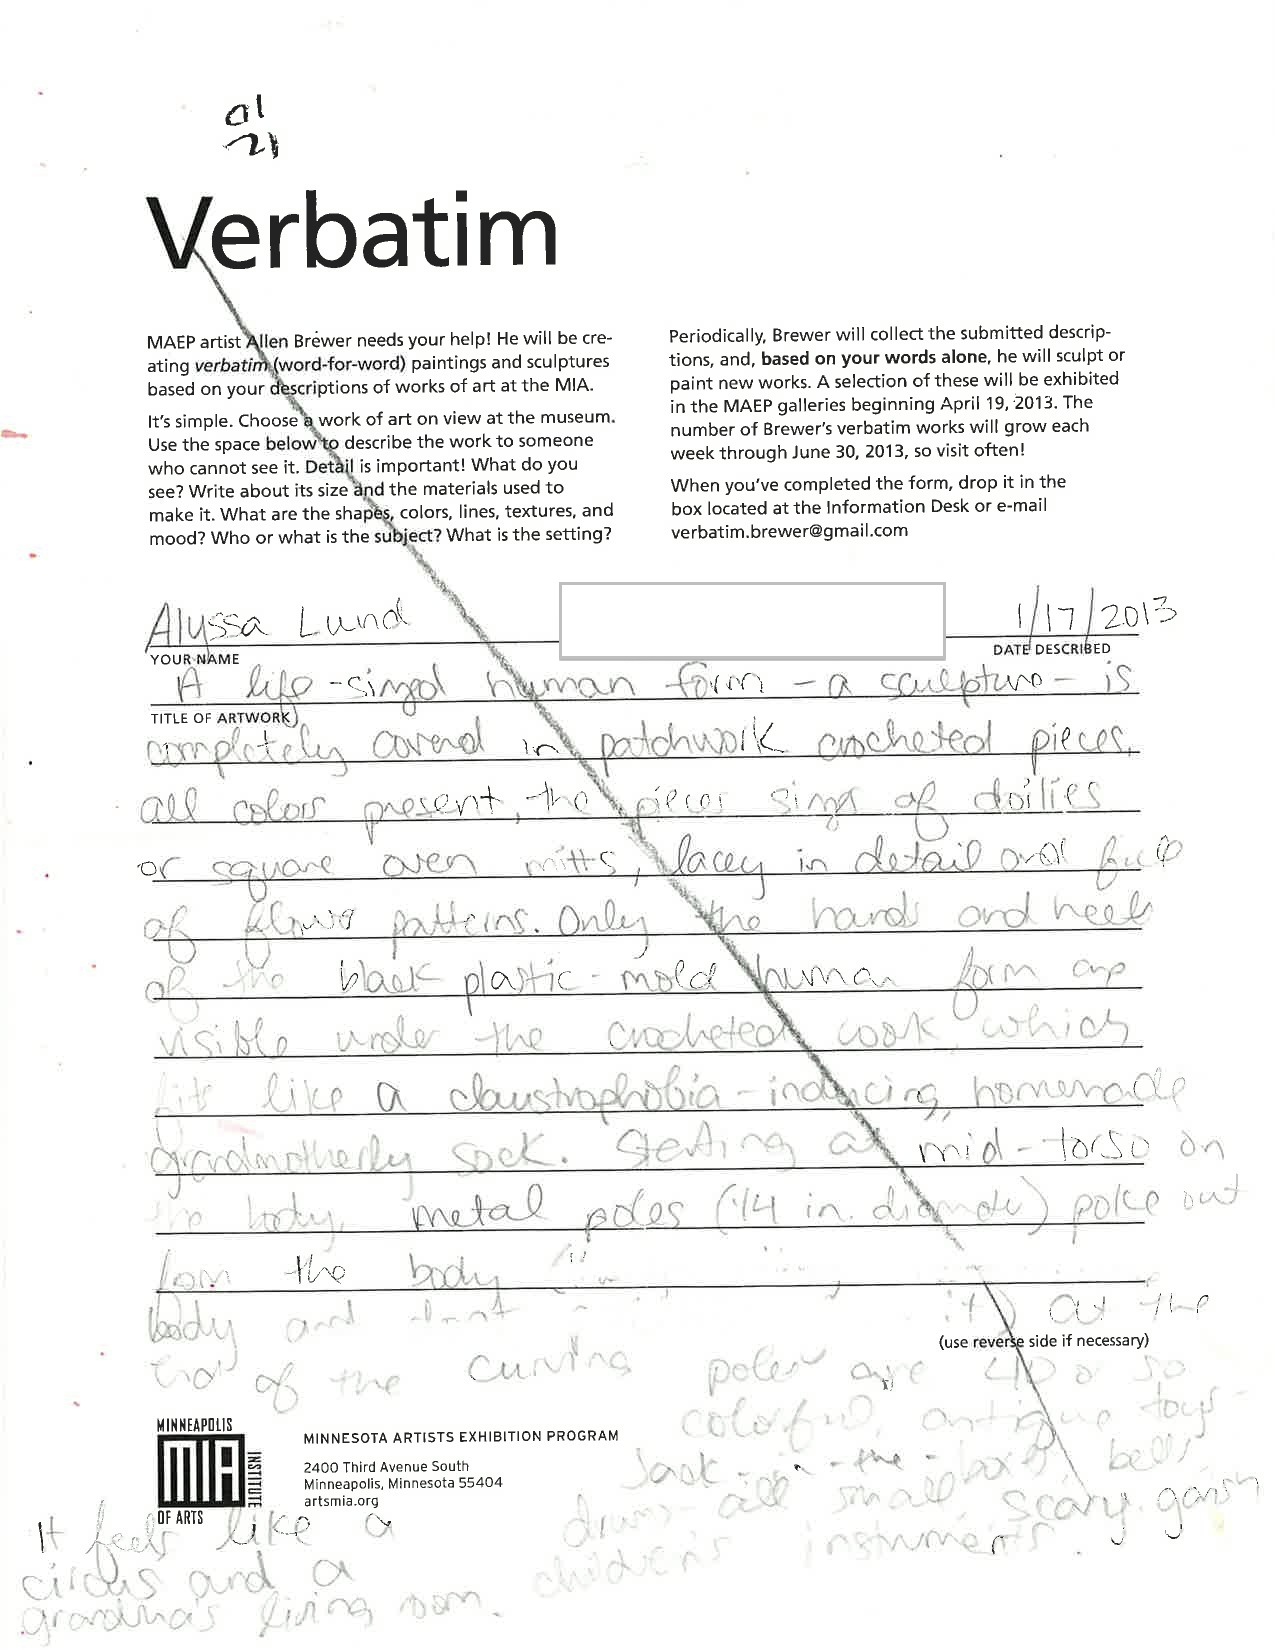 01
21
Verbatim
MAEP artist Allen Brewer needs your help! He will be cre-
ating verbatim (word-for-word) paintings and sculptures
based on your descriptions of works of art at the MIA.
It's simple. Choose a work of art on view at the museum.
Use the space below to describe the work to someone
who cannot see it. Detail is important! What do you
see? Write about its size and the materials used to
make it. What are the shapes, colors, lines, textures, and
mood? Who or what is the subject? What is the setting?
Periodically, Brewer will collect the submitted descrip-
tions, and, based on your words alone, he will sculpt or
paint new works. A selection of these will be exhibited
in the MAEP galleries beginning April 19, 2013. The
number of Brewer's verbatim works will grow each
week through June 30, 2013, so visit often!
When you've completed the form, drop it in the
box located at the Information Desk or e-mail
verbatim.brewer@gmail.com
Alyssa Lund 1/17/2013
YOUR NAME DATE DESCRIBED
A life-sized human form - a sculpture - is
TITLE OF ARTWORK
completely covered in patchwork crocheted pieces,
all colors present, the pieces sizes of doilies
or square oven mitts, lacey in detail and full
of flower patterns. Only the hands and heels
of the black plastic-mold human form are
visible under the crocheted which
fits like a claustrophobia-inducing, homemade
grandmotherly sock. Starting at mid-torso on
the body, metal poles (1/4 in. diameter) poke out
from the body
body and it) At the
end of the curving poles are 40 or so
(use reverse side if necessary)
colorful, antique toys -
Jack-in-the-boxes, bells,
drums - all small, scary, garish
children's instruments.
MINNEAPOLIS
MIA
INSTITUTE
OF ARTS
MINNESOTA ARTISTS EXHIBITION PROGRAM
2400 Third Avenue South
Minneapolis, Minnesota 55404
artsmia.org
It feels like a
circus and a
grandma's living room.